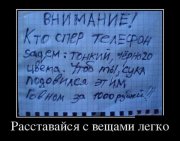 ВНИМАНИЕ!
Кто спер телефон
тонкий, чёрного
цвета. Что ты, сука
подавился этим
говном за 1000 рублей!!
Расставайся с вещами легко